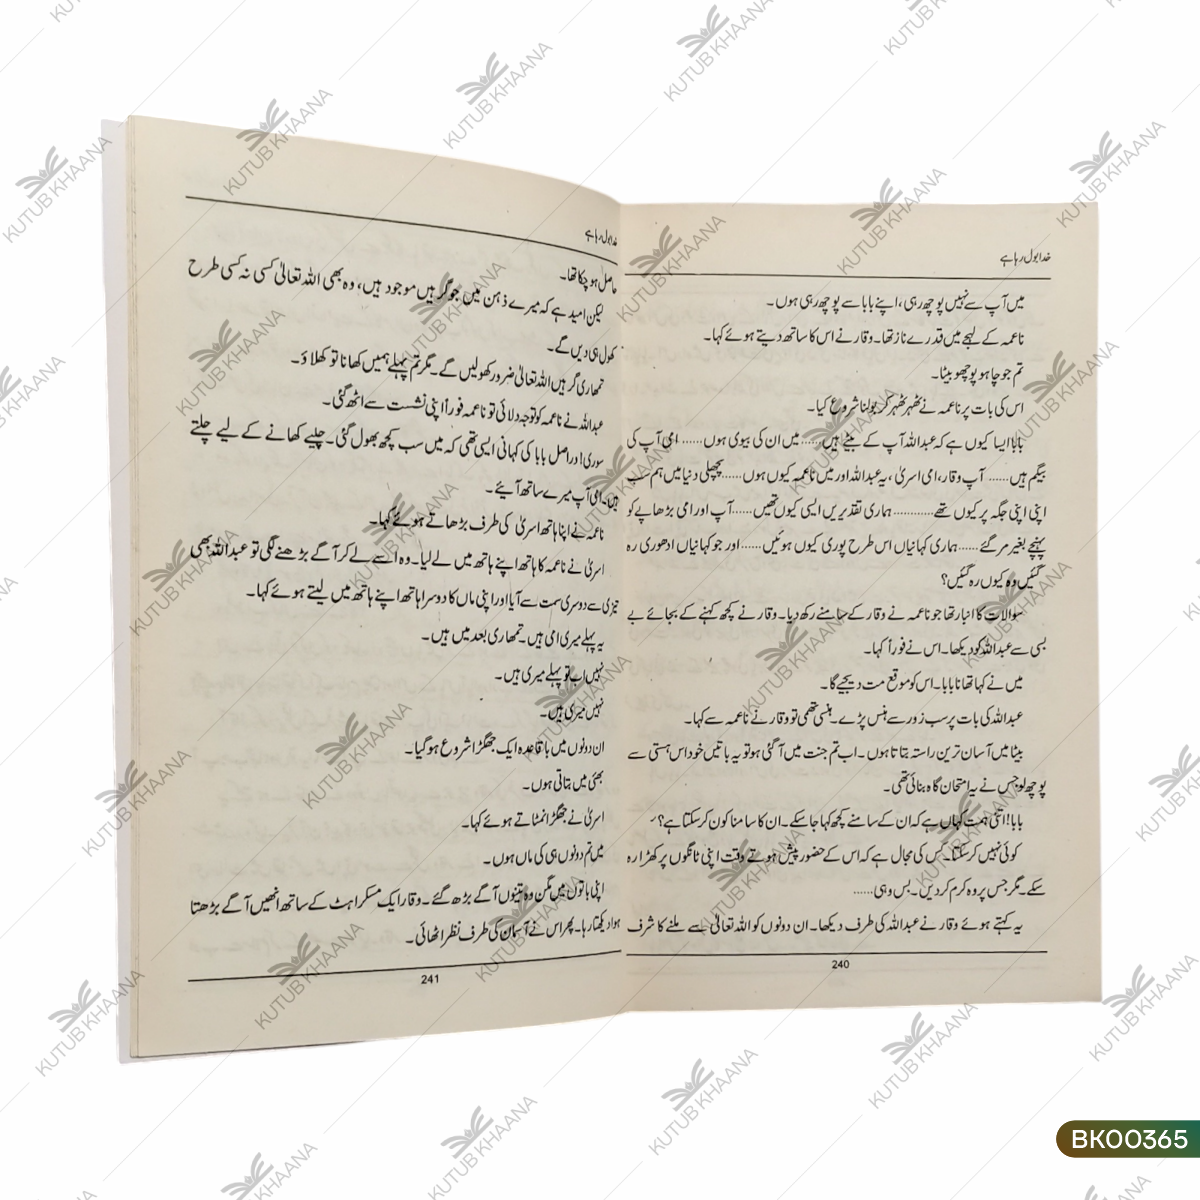 خدا بول رہا ہے
میں آپ سے نہیں پوچھ رہی، اپنے بابا سے پوچھ رہی ہوں۔
ناعمہ کے لہجے میں قدرے ناز تھا۔ وقار نے اس کا ساتھ دیتے ہوئے کہا۔
تم جو چاہو پوچھو بیٹا۔
اس کی بات پر ناعمہ نے ٹھہر ٹھہر کر بولنا شروع کیا۔
بابا ایسا کیوں ہے کہ عبداللہ آپ کے بیٹے ہیں...... میں ان کی بیوی ہوں...... امی آپ کی
بیگم ہیں...... آپ وقار، امی اسریٰ، یہ عبداللہ اور میں ناعمہ کیوں ہوں...... پچھلی دنیا میں ہم سب
اپنی اپنی جگہ پر کیوں تھے............ ہماری تقدیریں ایسی کیوں تھیں...... آپ اور امی بڑھاپے کو
پہنچے بغیر مر گئے...... ہماری کہانیاں اس طرح پوری کیوں ہوئیں...... اور جو کہانیاں ادھوری رہ
گئیں وہ کیوں رہ گئیں؟
سوالات کا انبار تھا جو ناعمہ نے وقار کے سامنے رکھ دیا۔ وقار نے کچھ کہنے کے بجائے بے
بسی سے عبداللہ کو دیکھا۔ اس نے فوراً کہا۔
میں نے کہا تھا نا بابا۔ اس کو موقع مت دیجیے گا۔
عبداللہ کی بات پر سب زور سے ہنس پڑے۔ ہنسی تھمی تو وقار نے ناعمہ سے کہا۔
بیٹا میں آسان ترین راستہ بتاتا ہوں۔ اب تم جنت میں آگئی ہو تو یہ باتیں خود اس ہستی سے
پوچھ لو جس نے یہ امتحان گاہ بنائی تھی۔
بابا! اتنی ہمت کہاں ہے کہ ان کے سامنے کچھ کہا جا سکے۔ ان کا سامنا کون کر سکتا ہے؟
کوئی نہیں کر سکتا۔ کس کی مجال ہے کہ اس کے حضور پیش ہوتے وقت اپنی ٹانگوں پر کھڑا رہ
سکے۔ مگر جس پر وہ کرم کر دیں۔ بس وہی......
یہ کہتے ہوئے وقار نے عبداللہ کی طرف دیکھا۔ ان دونوں کو اللہ تعالیٰ سے ملنے کا شرف
240
خدا بول رہا ہے
حاصل ہو چکا تھا۔
لیکن امید ہے کہ میرے ذہن میں جو گرہیں موجود ہیں، وہ بھی اللہ تعالیٰ کسی نہ کسی طرح
کھول ہی دیں گے۔
تمھاری گرہیں اللہ تعالیٰ ضرور کھولیں گے۔ مگر تم پہلے ہمیں کھانا تو کھلاؤ۔
عبداللہ نے ناعمہ کو توجہ دلائی تو ناعمہ فوراً اپنی نشست سے اٹھ گئی۔
سوری! دراصل بابا کی کہانی ایسی تھی کہ میں سب کچھ بھول گئی۔ چلیے کھانے کے لیے چلتے
ہیں۔ امی آپ میرے ساتھ آئیے۔
ناعمہ نے اپنا ہاتھ اسریٰ کی طرف بڑھاتے ہوئے کہا۔
اسریٰ نے ناعمہ کا ہاتھ اپنے ہاتھ میں لے لیا۔ وہ اسے لے کر آگے بڑھنے لگی تو عبداللہ بھی
تیزی سے دوسری سمت سے آیا اور اپنی ماں کا دوسرا ہاتھ اپنے ہاتھ میں لیتے ہوئے کہا۔
یہ پہلے میری امی ہیں۔ تمھاری بعد میں ہیں۔
نہیں اب تو پہلے میری ہیں۔
نہیں میری ہیں۔
ان دونوں میں باقاعدہ ایک جھگڑا شروع ہو گیا۔
بھئی میں بتاتی ہوں۔
اسریٰ نے جھگڑا نمٹاتے ہوئے کہا۔
میں تم دونوں ہی کی ماں ہوں۔
اپنی باتوں میں مگن وہ تینوں آگے بڑھ گئے۔ وقار ایک مسکراہٹ کے ساتھ انھیں آگے بڑھتا
ہوا دیکھتا رہا۔ پھر اس نے آسمان کی طرف نظر اٹھائی۔
241
KUTUB KHAANA
BK00365